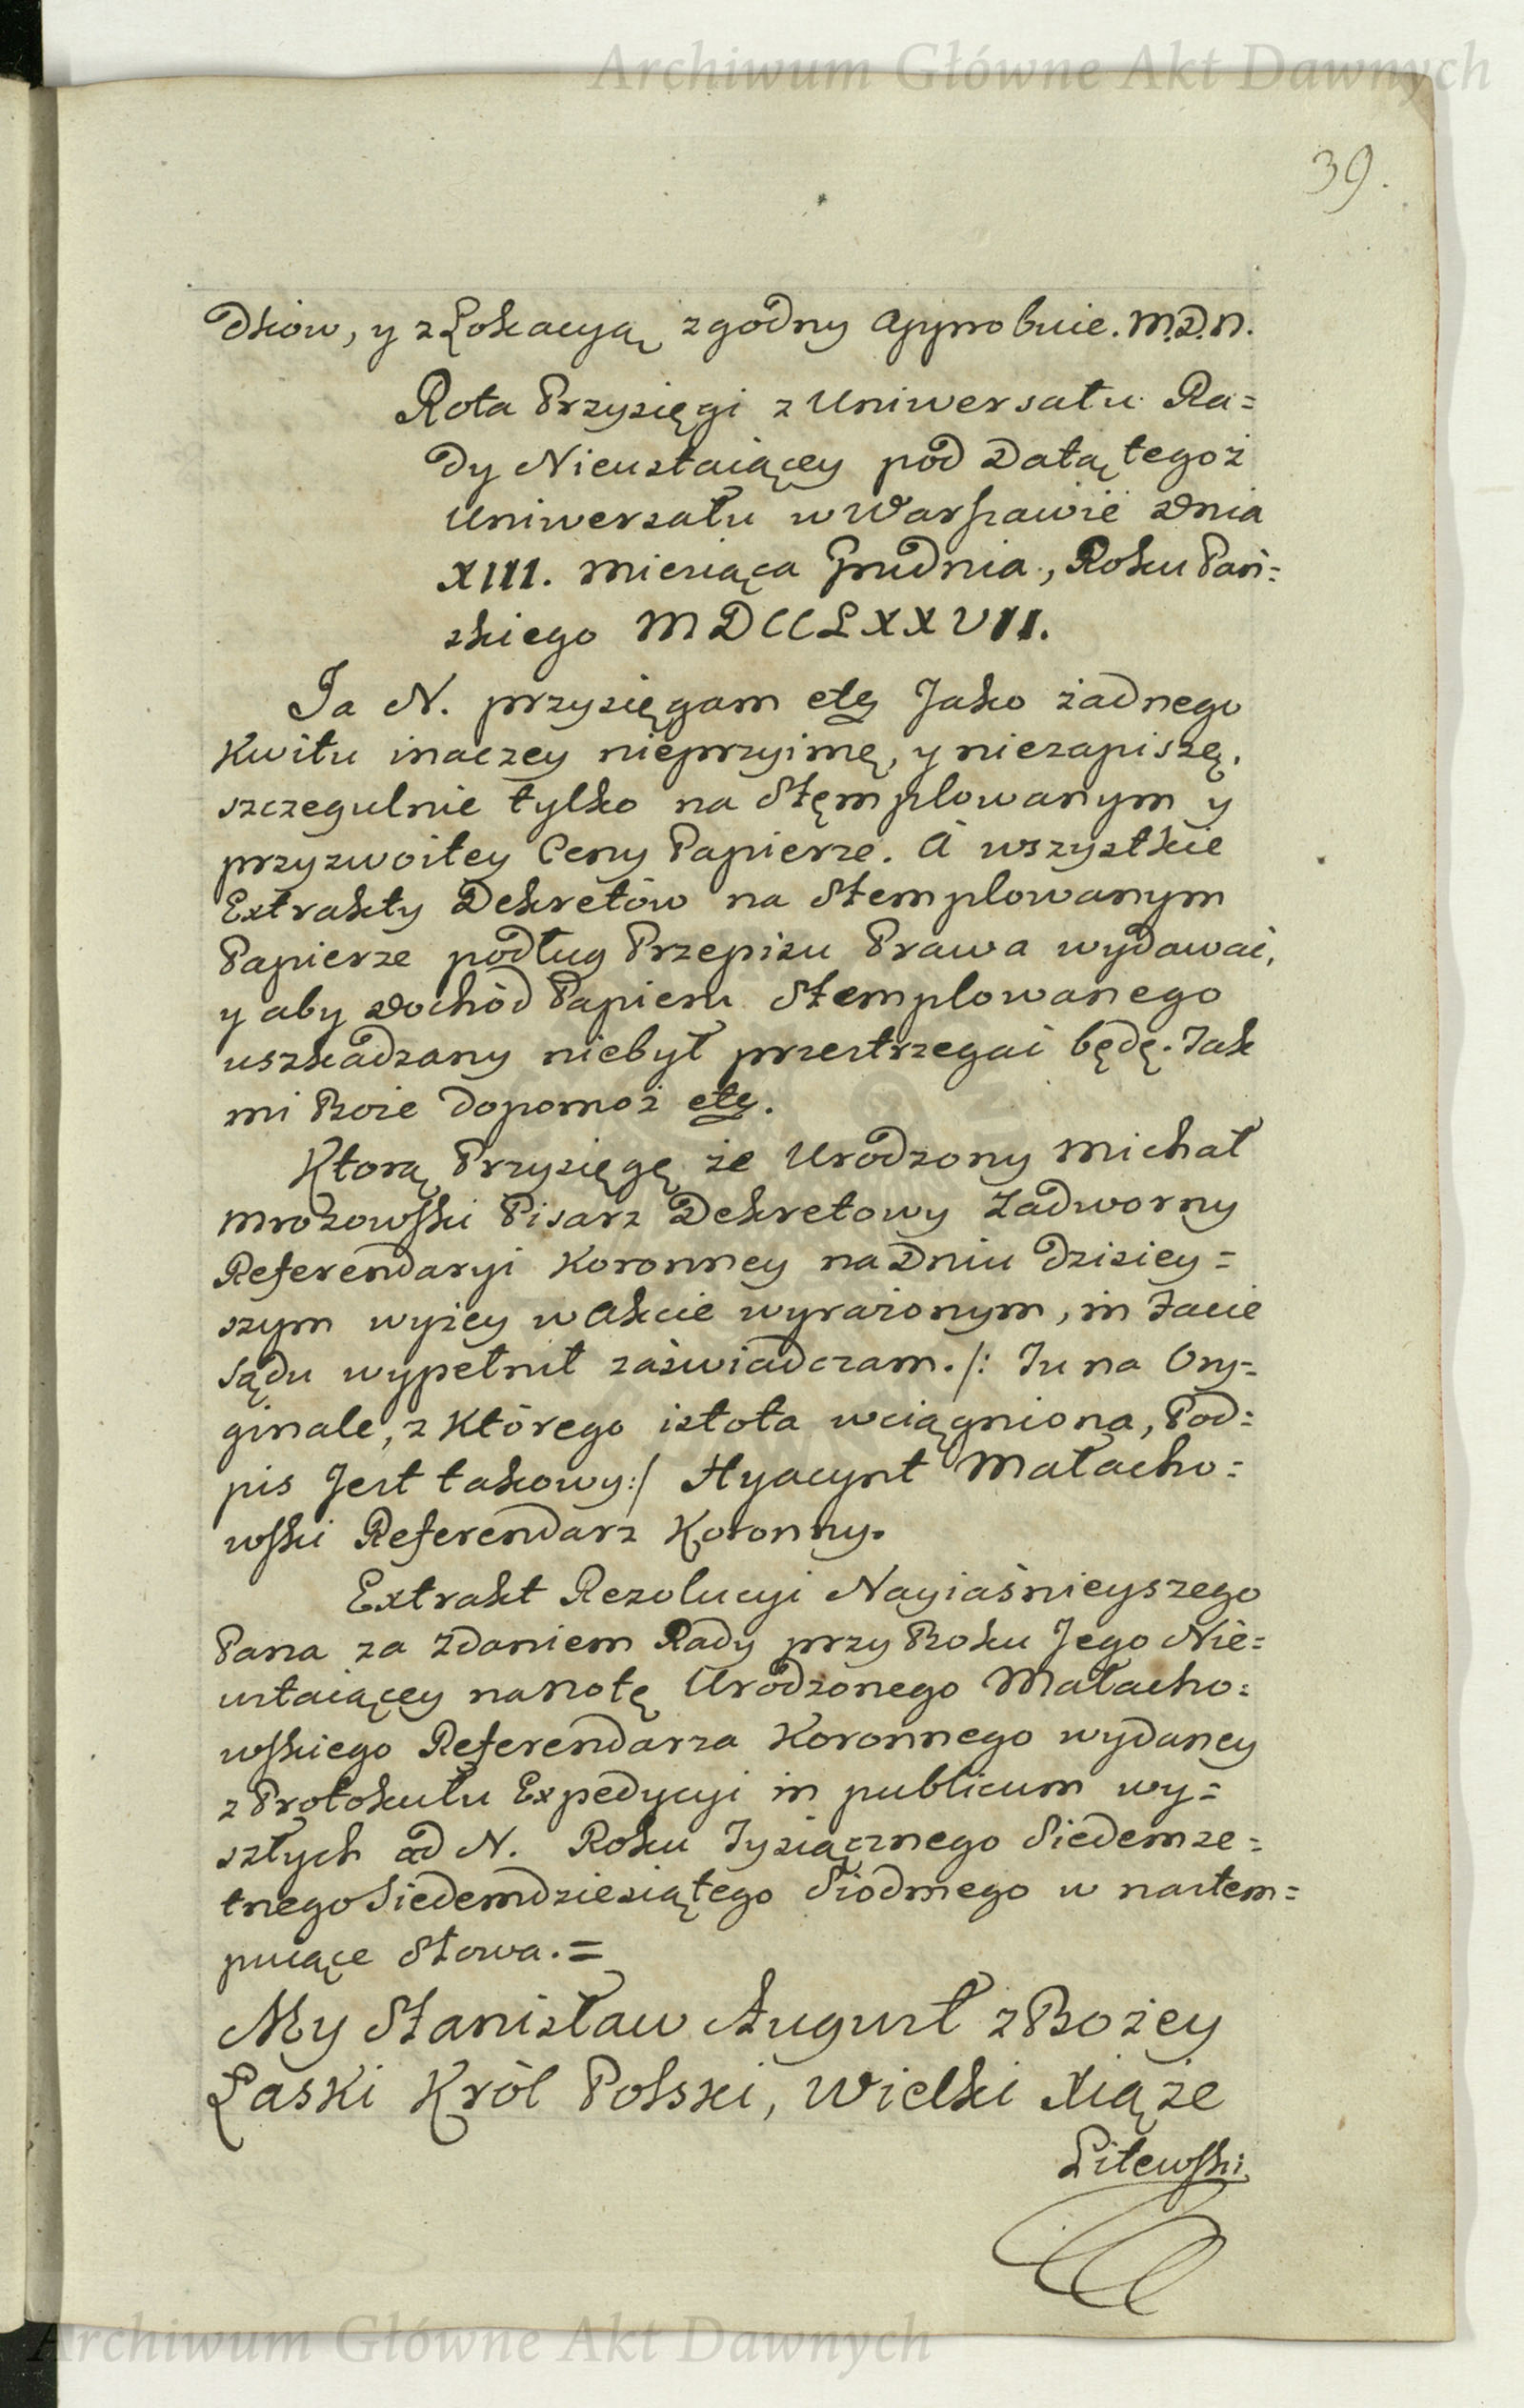 Archiwum Główne Akt Dawnych
39.
dków, y z Lokacyą zgodny approbuie. M.D.N.
Rota Przysięgi z Uniwersału Ra=
dy Nieustaiącey pod Datą tegoż
Uniwersału w Warszawie Dnia
XIII. Miesiąca Grudnia, Roku Pań=
skiego MDCCLXXVII.
Ja N. przysięgam etc Jako żadnego
Kwitu inaczey nieprzyimę, y niezapiszę,
szczegulnie tylko na Stęmplowanym y
przyzwoitey Ceny Papierze. A wszystkie
Extrakty Dekretów na Stemplowanym
Papierze podług Przepisu Prawa wydawać,
y aby Dochód Papieru Stemplowanego
uszkadzany niebył przestrzegać będę. Tak
mi Boże dopomoż etc.
Ktorą Przysięgę że Urodzony Michał
Mrozowski Pisarz Dekretowy Zadworny
Referendaryi Koronney na Dniu dzisiey=
szym wyżey w Akcie wyrażonym, in Facie
Sądu wypełnił zaświadczam. /: Tu na Ory=
ginale, z Którego istota wciągniona, Pod=
pis Jest takowy:/ Hyacynt Małacho=
wski Referendarz Koronny.
Extrakt Rezolucyi Nayiaśnieyszego
Pana za Zdaniem Rady przy Boku Jego Nie=
ustaiącey na Notę Urodzonego Małacho=
wskiego Referendarza Koronnego wydaney
z Protokułu Expedycyi in publicum wy=
szłych ad N. Roku Tysiącznego Siedemse=
tnego Siedemdziesiątego Siodmego w nastem=
puiące Słowa. =
My Stanisław August z Bożey
Łaski Król Polski, Wielki Xiąże
Litewski
Archiwum Główne Akt Dawnych